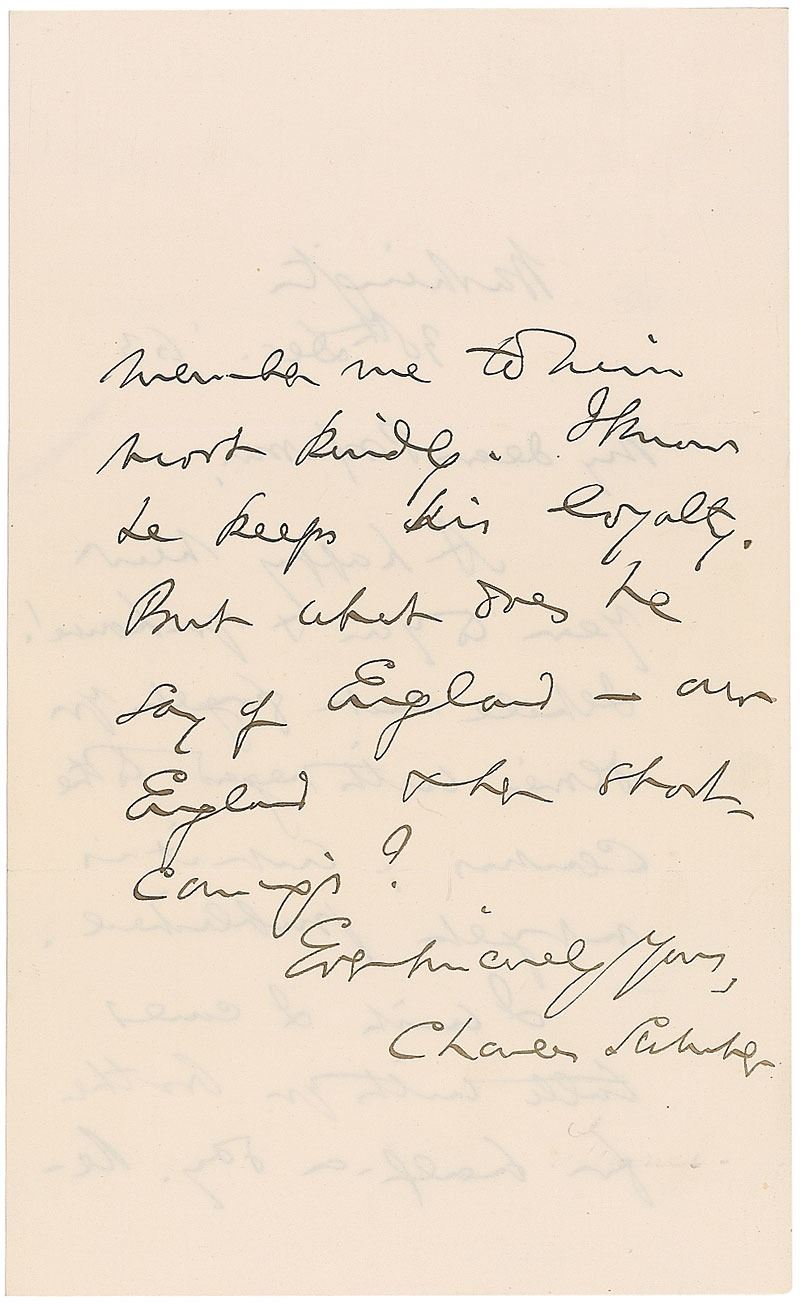 member me to him
most kindly. I know
he keeps his loyalty.
But what does he
say of England — our
England & her short-
comings?
Ever sincerely Yours,
Charles